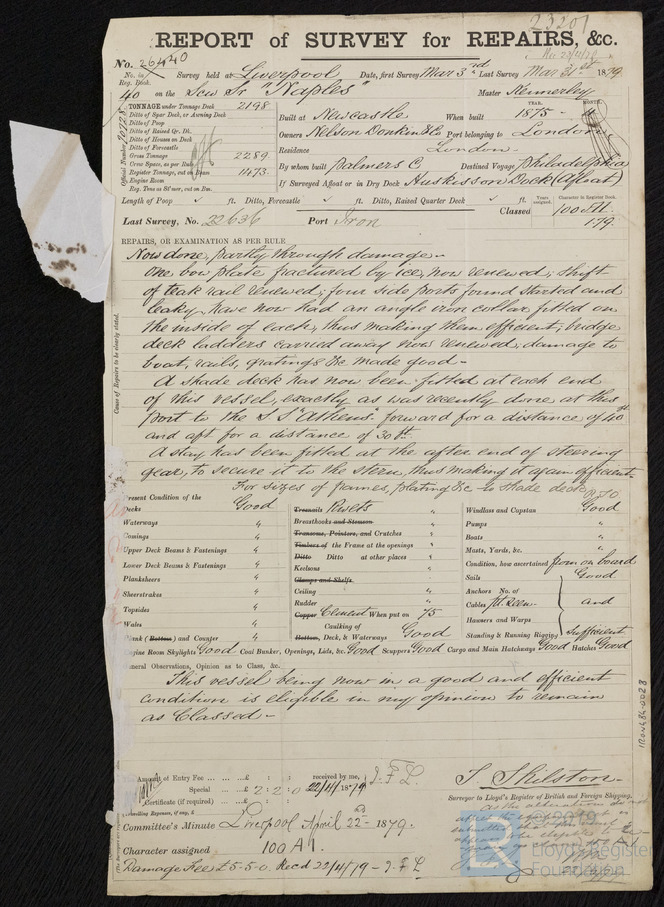 23201
REPORT of SURVEY for REPAIRS, &c.
No. 26440
No. in Reg. Book. Survey held at Liverpool Date, first Survey Mar 3rd Last Survey Mar 31st 1879
40 on the Scw Sr "Naples" Master Kennerley
TONNAGE under Tonnage Deck 2198
Ditto of Spar Deck, or Awning Deck
Ditto of Poop
Ditto of Raised Qr. Dk.
Ditto of Houses on Deck
Ditto of Forecastle
Gross Tonnage 2289
Gross Space, as per Rule
Register Tonnage, cut on Beam 1473
Engine Room
Reg. Tons as St'mer, cut on Bm.
Official Number
Built at Newcastle When built YEAR. 1875 MONTH.
Owners Nelson Donkin & Co Port belonging to London
Residence London
By whom built Palmers Co Destined Voyage Philadelphia
If Surveyed Afloat or in Dry Dock Huskisson Dock (Afloat)
Length of Poop ft. Ditto, Forecastle ft. Ditto, Raised Quarter Deck ft. Years assigned. Character in Register Book.
Classed 100 A1.
1.79.
Last Survey, No. 22636 Port Iron
REPAIRS, OR EXAMINATION AS PER RULE
Now done, partly through damage.-
One bow plate fractured by ice, now renewed; shift
of teak rail renewed; four side ports found started and
leaky, have now had an angle iron collar fitted on
the inside of each, thus making them efficient; bridge
deck ladders carried away now renewed; damage to
boat, rails, gratings &c made good -
A shade deck has now been fitted at each end
of this vessel, exactly as was recently done at this
port to the S S "Athens" forward for a distance of 40 ft
and aft for a distance of 30 ft.
A stay has been fitted at the after end of steering
gear, to secure it to the stern, thus making it again efficient.
For sizes of frames, plating &c to shade deck
Cause of Repairs to be clearly stated.
Present Condition of the
Decks Good
Waterways "
Comings "
Upper Deck Beams & Fastenings "
Lower Deck Beams & Fastenings "
Planksheers "
Sheerstrakes "
Topsides "
Wales "
Plank (Bottom) and Counter "
Treenails Rivets "
Breasthooks and Stemson "
Transoms, Pointers, and Crutches "
Timbers of the Frame at the openings "
Ditto Ditto at other places "
Keelsons "
Clamps and Shelfs
Ceiling "
Rudder "
Copper Cement When put on 75
Caulking of
Bottom, Deck, & Waterways Good
Windlass and Capstan Good
Pumps "
Boats "
Masts, Yards, &c. "
Condition, how ascertained from on board
Sails Good
Anchors No. of
Cables and
Hawsers and Warps
Standing & Running Rigging sufficient
Engine Room Skylights Good Coal Bunker, Openings, Lids, &c. Good Scuppers Good Cargo and Main Hatchways Good Hatches Good
General Observations, Opinion as to Class, &c.
This vessel being now in a good and efficient
condition is eligible in my opinion to remain
as Classed -
IRON484-0028
Amount of Entry Fee £ : : received by me,
Special £ 2 : 2 : 0 22/4/1879 J.F.L.
Certificate (if required) £ : :
Travelling Expenses, if any, £
Surveyor to Lloyd's Register of British and Foreign Shipping.
Committee's Minute Liverpool April 22nd 1879.
Character assigned 100 A1.
Damage Fee £5-5-0. Recd 22/4/79 - J.F.L
© 2019
Lloyd's Register
Foundation